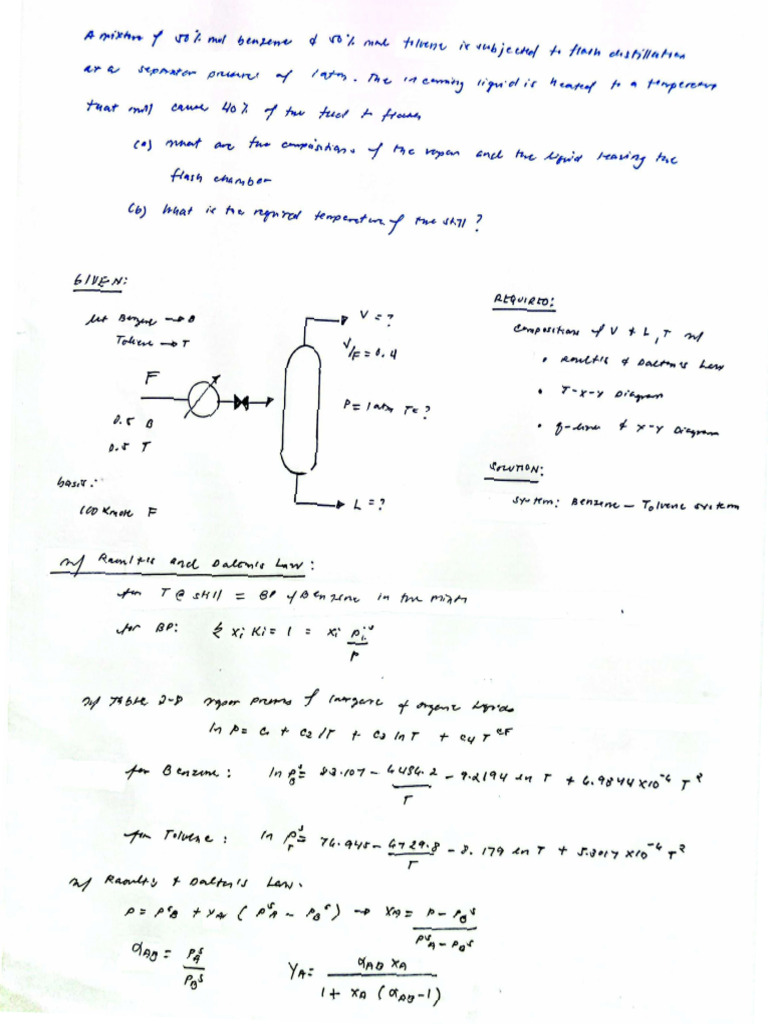 A mixture of 50% mol benzene & 50% mole toluene is subjected to flash distillation
at a separator pressure of 1 atm. The incoming liquid is heated to a temperature
that will cause 40% of the feed to flash
(a) What are the compositions of the vapor and the liquid leaving the
flash chamber
(b) What is the required temperature of the still?
GIVEN:
let Benzene → B
Toluene → T
F
0.5 B
0.5 T
basis:
100 kmole F
V = ?
V/F = 0.4
P = 1 atm T = ?
L = ?
REQUIRED:
Compositions of V & L, T w/
• Raoult's & Dalton's Law
• T-x-y Diagram
• q-line & x-y Diagram
SOLUTION:
System: Benzene – Toluene system
w/ Raoult's and Dalton's Law:
for T @ still = BP of Benzene in the
for BP: Σ xi Ki = 1 = xi Pi^s/P
w/ Table 2-8 vapor press of inorganic & organic liquids
ln P = C1 + C2/T + C3 ln T + C4 T^C5
for Benzene: ln P_B^s = 83.107 – 6486.2/T – 9.2194 ln T + 6.9844 x10^-6 T^2
for Toluene: ln P_T^s = 76.945 – 6729.8/T – 8.179 ln T + 5.3017 x10^-6 T^2
w/ Raoult's & Dalton's Law.
P = P^s_B + x_A (P^s_A – P_B^s) → x_A = P – P_B^s / P^s_A – P_B^s
α_AB = P^s_A / P_B^s
Y_A = α_AB x_A / 1 + x_A (α_AB – 1)